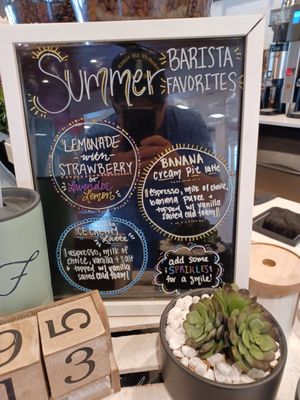 Summer
BARISTA
FAVORITES
LEMONADE
with
STRAWBERRY
or
Lavender
Lemon
BANANA
CREAM PIE Latte
espresso, milk of choice,
banana pulver
w/ vanilla
salted cold foam!
ICE CREAM
Latte
espresso, milk of
choice, vanilla + salt
+ topped w/ vanilla
salted cold foam!
ADD SOME
SPRINKLES
FOR A SMILE!
F
9
1
5
3